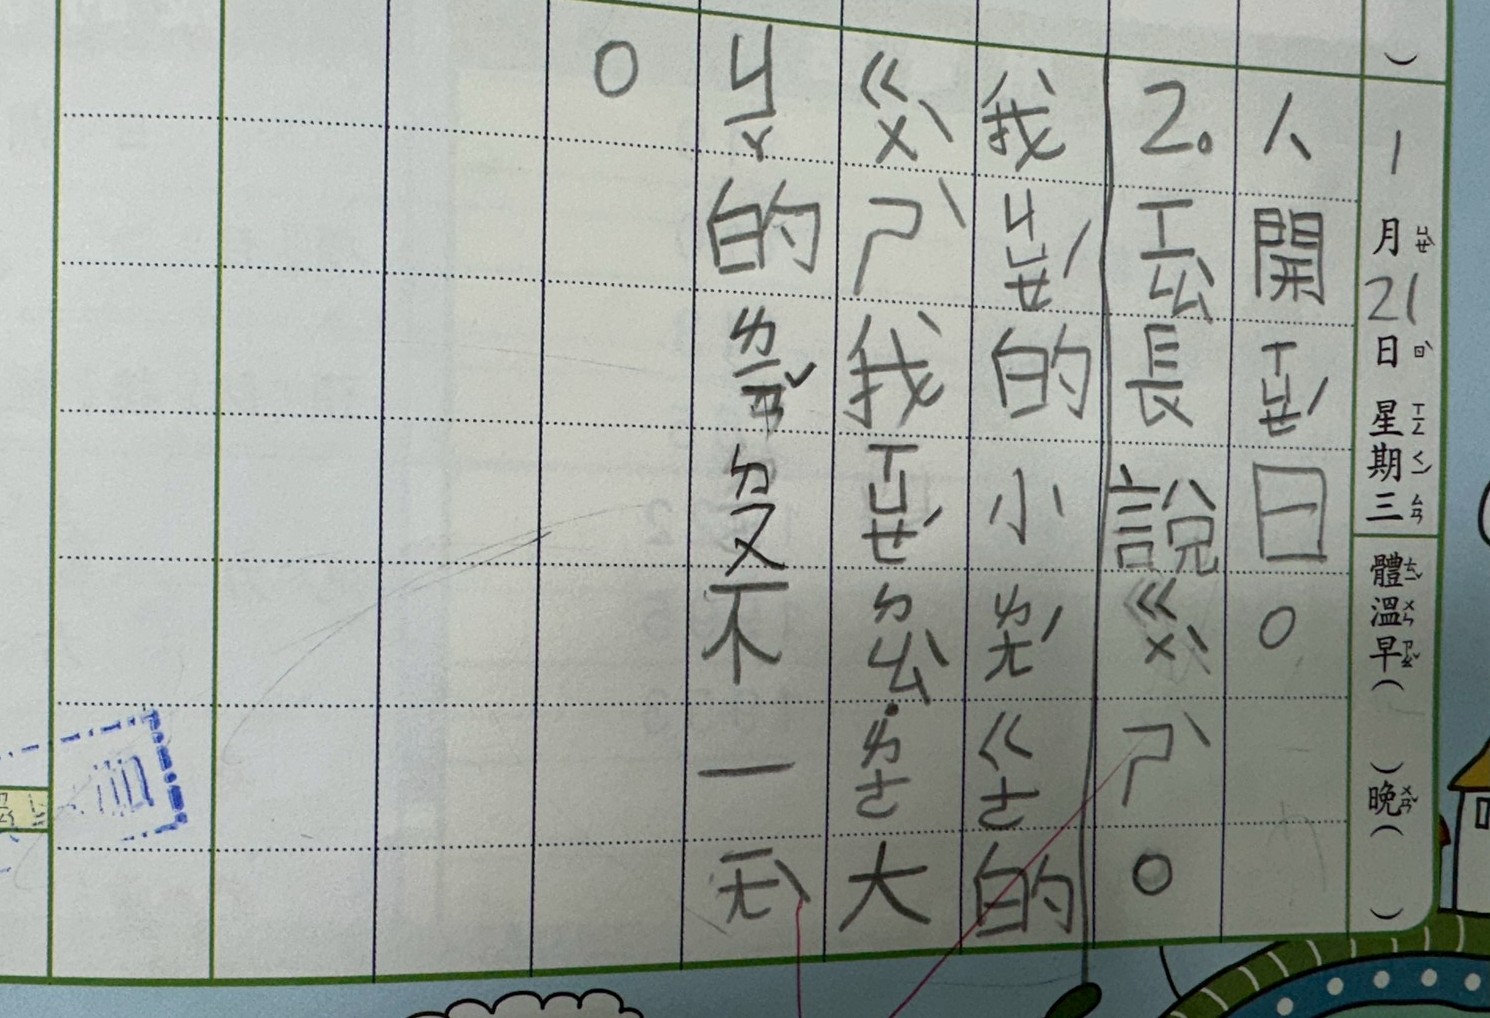 ）1月ㄩㄝˋ21日ㄖˋ星ㄒㄧㄥ期ㄑㄧˊ三ㄙㄢ體ㄊㄧˇ溫ㄨㄣ早ㄗㄠˇ（ ）晚ㄨㄢˇ（ ）
人開ㄒㄩㄝˊ日。
2.ㄒㄧㄠ長說ㄍㄨˋㄕˋ。
我ㄐㄩㄝˊ的小ㄌㄤˊㄍㄜ的
ㄍㄨˋㄕˋ我ㄒㄩㄝˊㄉㄠˋ˙ㄌㄜ大
ㄐㄧㄚ的ㄌㄧㄢˇㄉㄡ不一ㄧㄤˋ
。